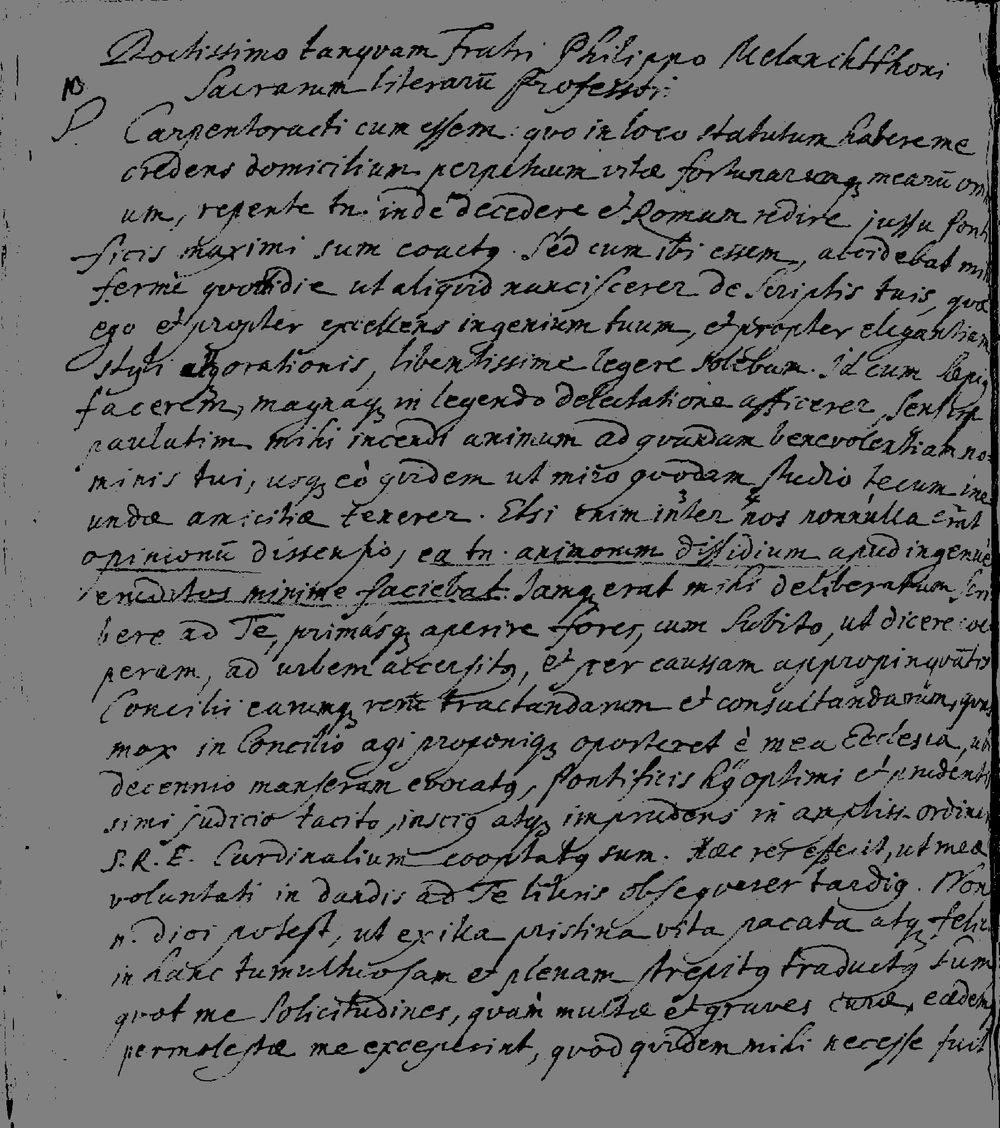 Doctissimo tanqvam Fratri Philippo Melanchthoni
Sacrarum literarū Professori.
S Carpentoracti cum essem: qvo in loco statutum habere me
credens domicilium perpetuum vitæ fortunarumqꝫ mearū om
um, repente tn. inde decedere et Romam redire jussu Ponti
ficis maximi sum coactꝰ. Sed cum ibi essem, accidebat mihi
fermè qvotidie ut aliqvid nanciscerer de Scriptis tuis, qvæ
ego et propter excellens ingenium tuum, et propter elegantiam
styli orationis, libentissime legere solebam. Id cum sæpiꝰ
facerem, magnaqꝫ in legendo delectatione afficerer, sensi
paulatim mihi incendi animum ad qvandam benevolentiam no=
minis tui, usqꝫ eò qvidem ut miro qvodam studio tecum ine
undæ amicitiæ tenerer. Etsi enim inter nos nonnulla erat
opinionū dissensio, ea tn. animorum dissidium apud ingenuè
eruditos minime faciebat. Jamqꝫ erat mihi deliberatum Scri
bere ad Te, primasqꝫ aperire fores, cum Subito, ut dicere coe
peram, ad urbem accersitꝰ, et per caussam appropinqvātis
Concilii earumqꝫ rerū tractandarum et consultandarum, qvas
mox in Concilio agi proponiqꝫ oporteret è mea Ecclesia, ubi
decennio manseram evocatꝰ, Pontificis hujꝰ optimi et prudentis
simi judicio tacito, insciꝰ atqꝫ imprudens in ampliss. ordinem
S. R. E. Cardinalium cooptatꝰ sum. Hæc res effecit, ut meæ
voluntati in dandis ad Te literis obseqverer tardiꝰ. Non
n. dici potest, ut ex illa pristina vita pacata atqꝫ felici
in hanc tumultuosam et plenam strepitꝰ traductꝰ sum
qvot me Solicitudines, qvàm multæ et graves curæ, eædem
permolestæ me exceperint, qvod qvidem mihi necesse fuit